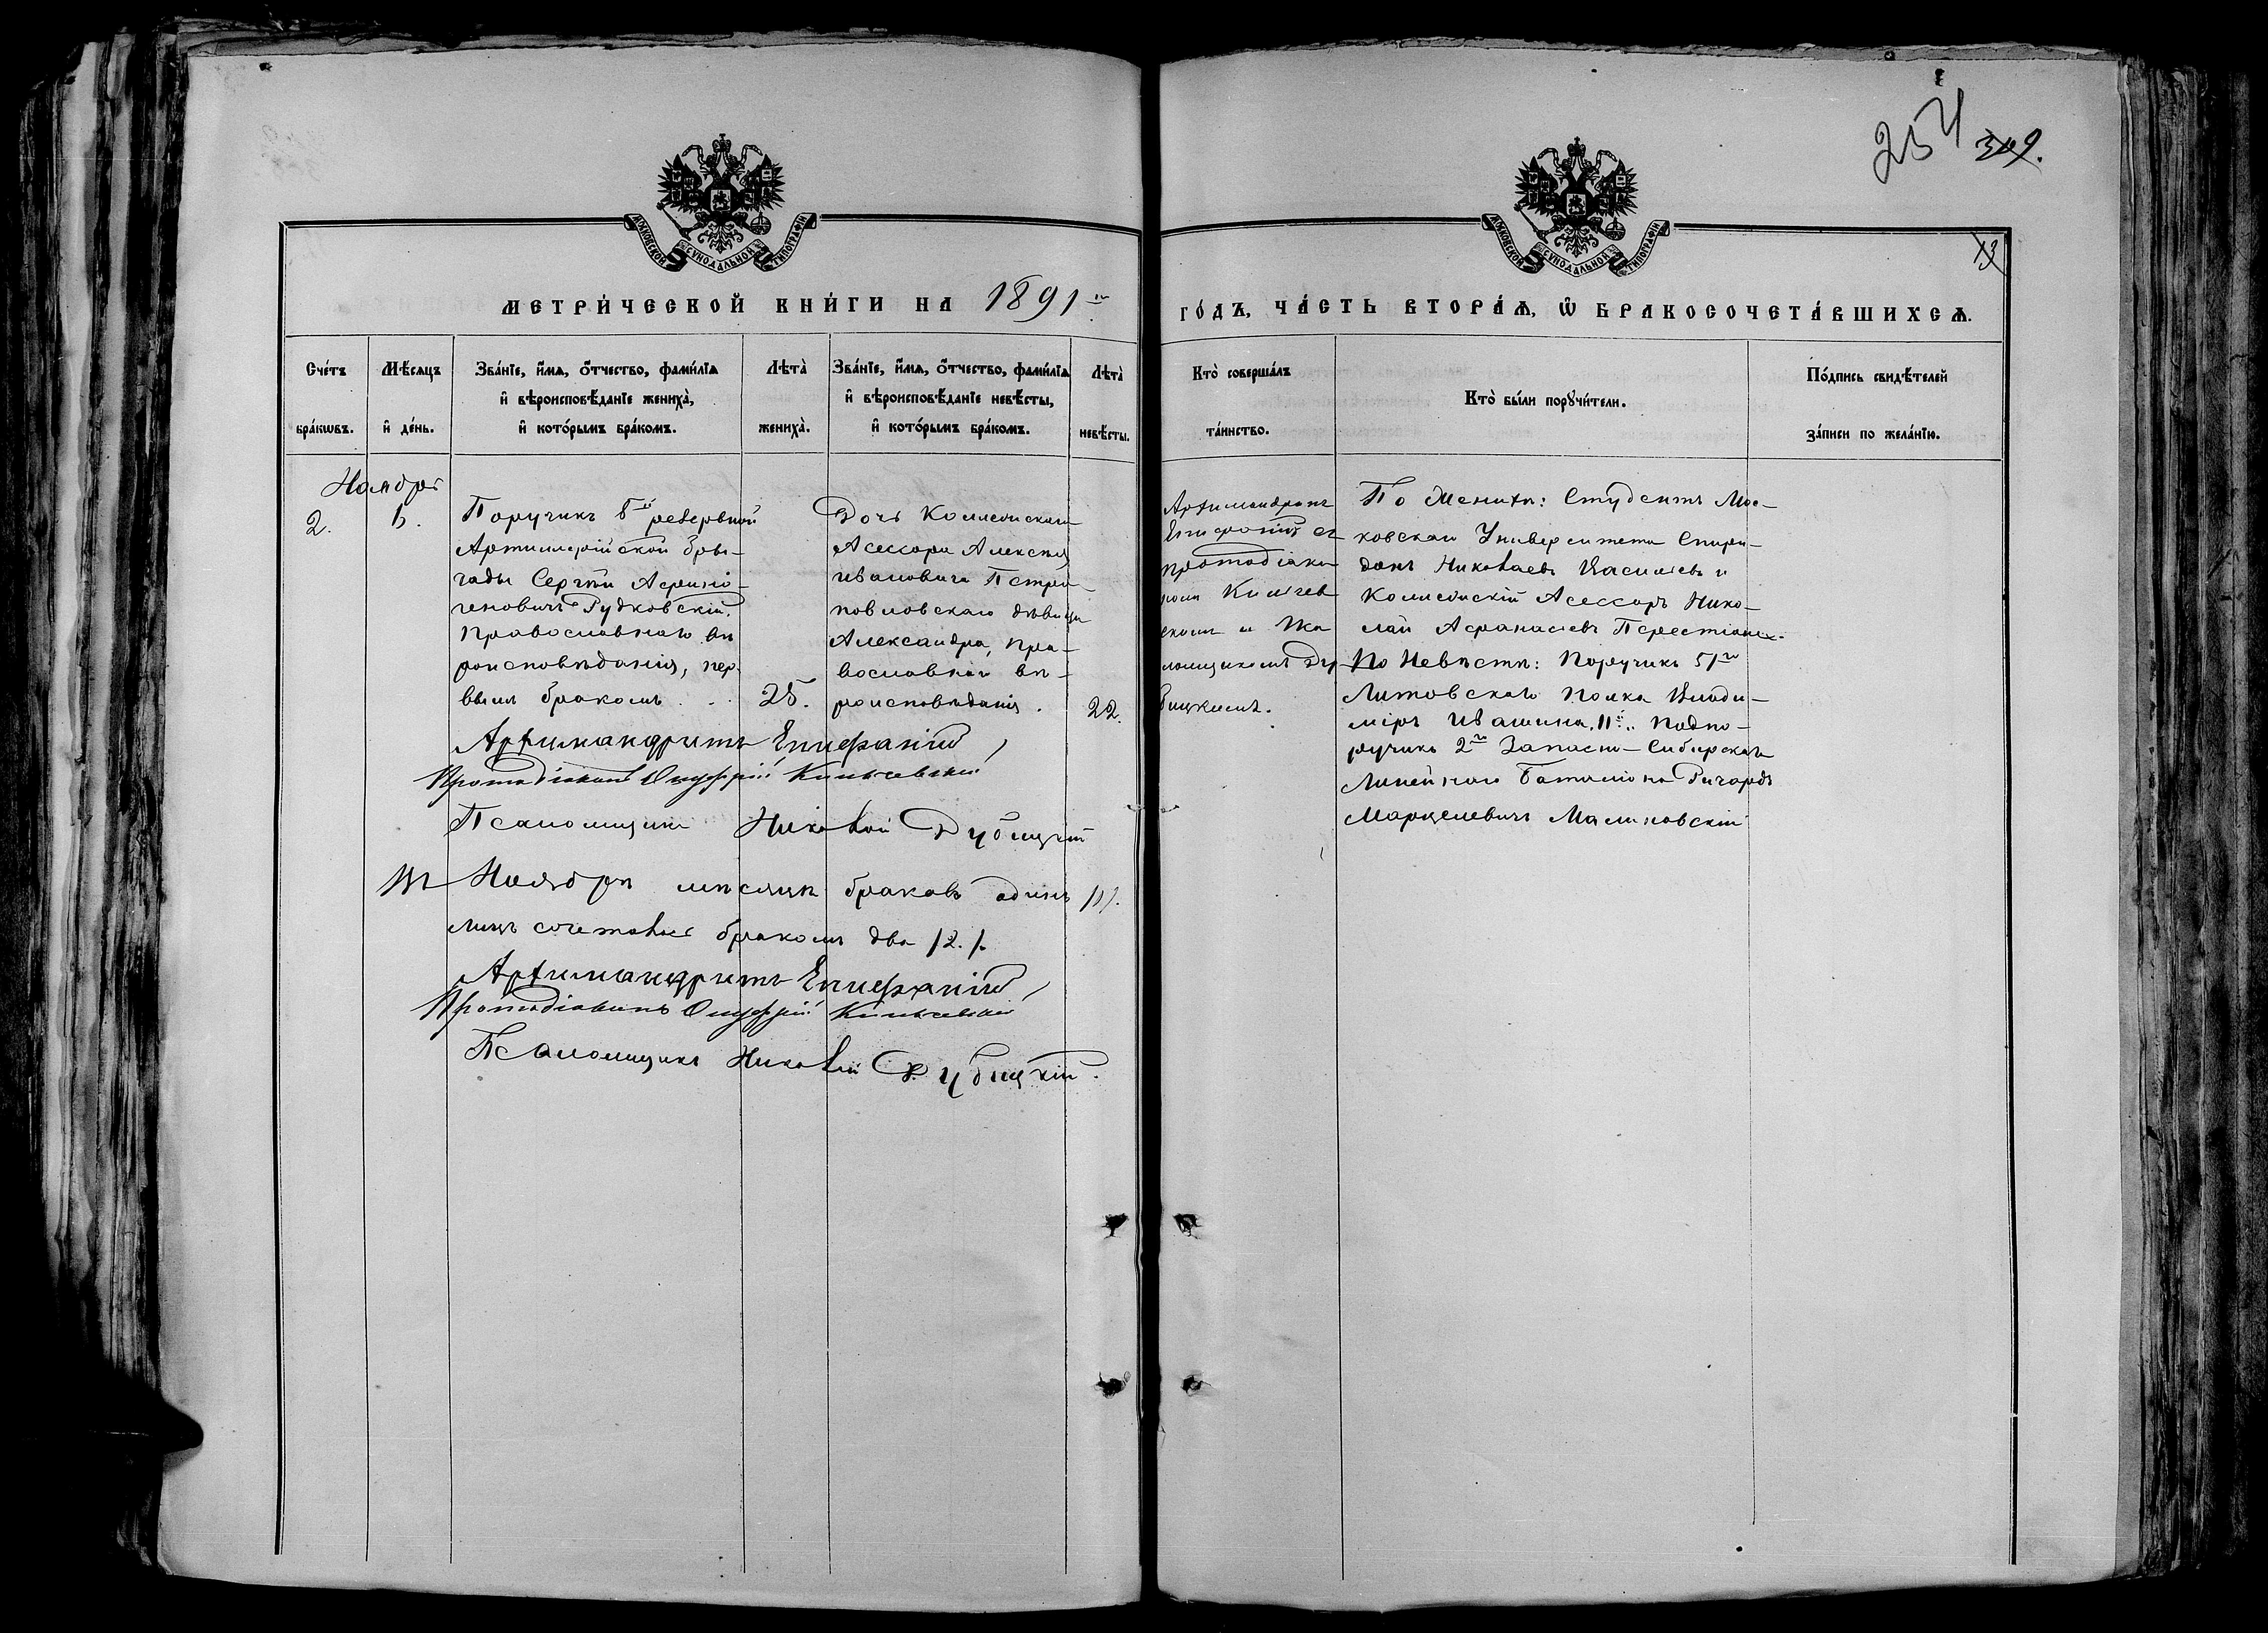 254 349.
13
МОСКОВСКОЙ СУНОДАЛЬНОЙ ТИПОГРАФІИ
МОСКОВСКОЙ СУНОДАЛЬНОЙ ТИПОГРАФІИ
МЕТРИ́ЧЕСКОЙ КНИ́ГИ НА 1891й
ГО́ДЪ, ЧА́СТЬ ВТОРА́Ѧ, Ѡ БРАКОСОЧЕТА́ВШИХСѦ.
Сче́тъ бра́кѡвъ.
Мѣ́сяцъ и҆ де́нь.
Зва́нїе, и҆́мѧ, ѻ҆́тчество, фами́лїѧ и҆ вѣроисповѣ́данїе жениха̀, и҆ кото́рымъ бра́комъ.
Лѣта̀ жениха̀.
Зва́нїе, и҆́мѧ, ѻ҆́тчество, фами́лїѧ и҆ вѣроисповѣ́данїе невѣ́сты, и҆ кото́рымъ бра́комъ.
Лѣта̀ невѣ́сты.
Кто̀ соверша́лъ та́инство.
Кто̀ бы́ли порꙋчи́тели.
По́дпись свидѣ́телей за́писи по жела́нїю.
Ноября
2.
Поручикъ резервной
Артиллерійской бри-
гады Сергѣй
Рудковскій,
Православнаго вѣ
роисповѣданія, пер-
вымъ бракомъ
25.
Дочь Коллежскаго
Асессора Алексѣя
Ивановича Петро
повловскаго дѣвица
Александра, пра-
вославнаго вѣ-
роисповѣданія.
22.
Архимандритъ
Епифаній съ
протодіако
номъ Кильчев
скимъ и Пса
ломщикомъ Ду
бицкимъ.
По Женихѣ: Студентъ Мос-
ковскаго Университета Спири-
донъ Николаевъ Васильевъ и
Коллежскій Асессоръ Нико-
лай Афанасьевъ
По Невѣстѣ: Поручикъ 51го
Литовскаго полка Влади-
міръ Ивашина, и Подпо-
ручикъ 2го Западно-Сибирскаго
Линейнаго Баталіона Ричардъ
Марцелевичъ Малиновскій
Архимандритъ Епифаній
Протодіаконъ Онуфрій Кильчевскій
Псаломщикъ Николай Дубицкій
Въ Ноябрѣ мѣсяцѣ браковъ одинъ /1/.
лицъ сочетовые бракомъ два /2./.
Архимандритъ Епифаній
Протодіаконъ Онуфрій Кильчевскій
Псаломщикъ Николай Дубицкій.